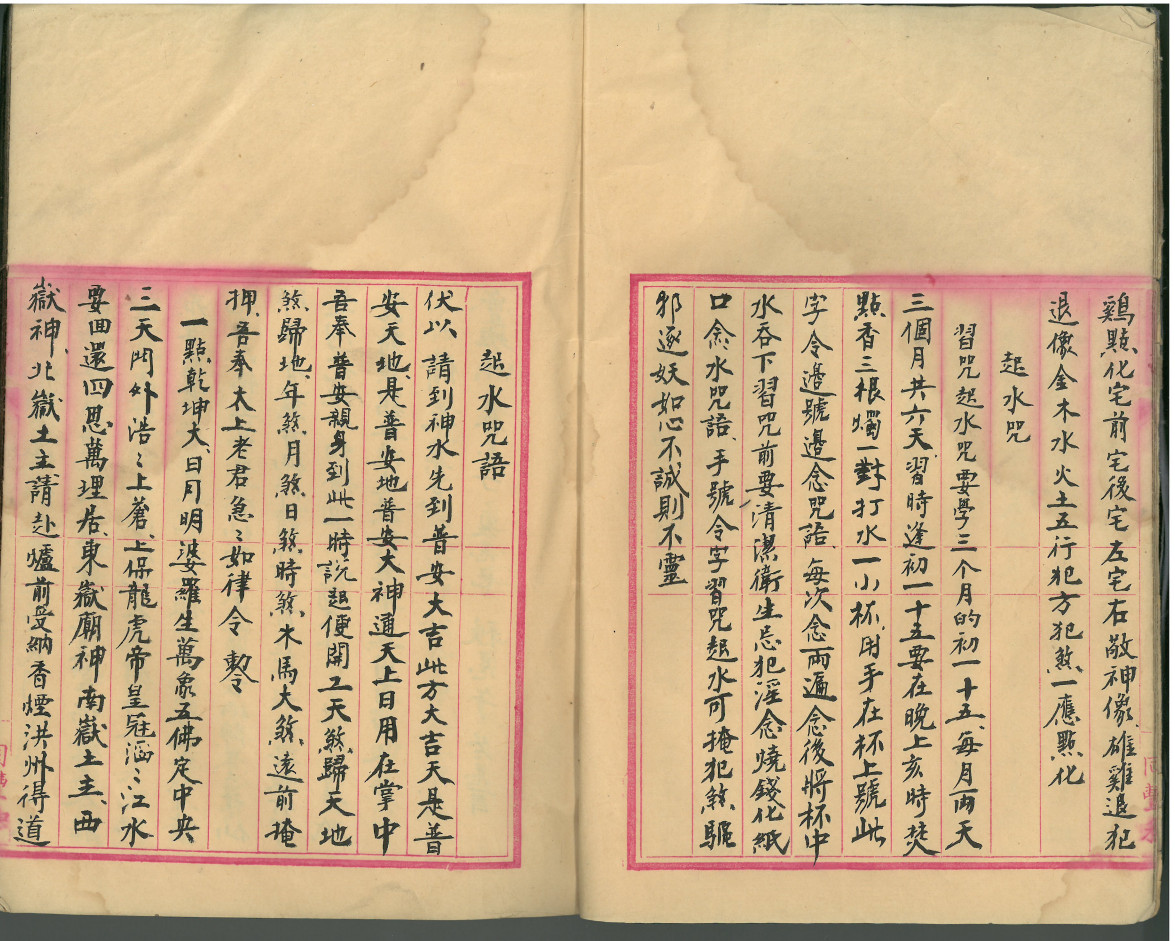 鷄點化宅前宅後宅左宅右敬神像雄雞退犯
退像金木水火土五行犯方犯煞一應點化
起水咒
習咒起水咒要學三个月的初一十五每月両天
三個月共六天習時逢初一十五要在晚上亥時焚
點香三根燭一對打水一小杯用手在杯上號此
字令邊號邊念咒語每次念両遍念後將杯中
水吞下習咒前要清潔衛生忌犯淫念燒錢化紙
口念水咒語手號令字習咒起水可掩犯煞驅
邪逐妖如心不誠則不靈
起水咒語
伏以請到神水先到普安大吉此方大吉天是普
安天地是普安地普安大神通天上日用在掌中
吾奉普安親身到此一時説起便開工天煞歸天地
煞歸地年煞月煞日煞時煞木馬大煞遠前掩
押吾奉太上老君急〻如律令勅
一點乾坤大日月明婆羅生萬象五佛定中央
三天門外浩〻上蒼上保龍虎帝皇冠滔〻江水
要回還四恩萬埋居東嶽廟神南嶽土主西
嶽神北嶽土主請赴爐前受納香煙洪州得道